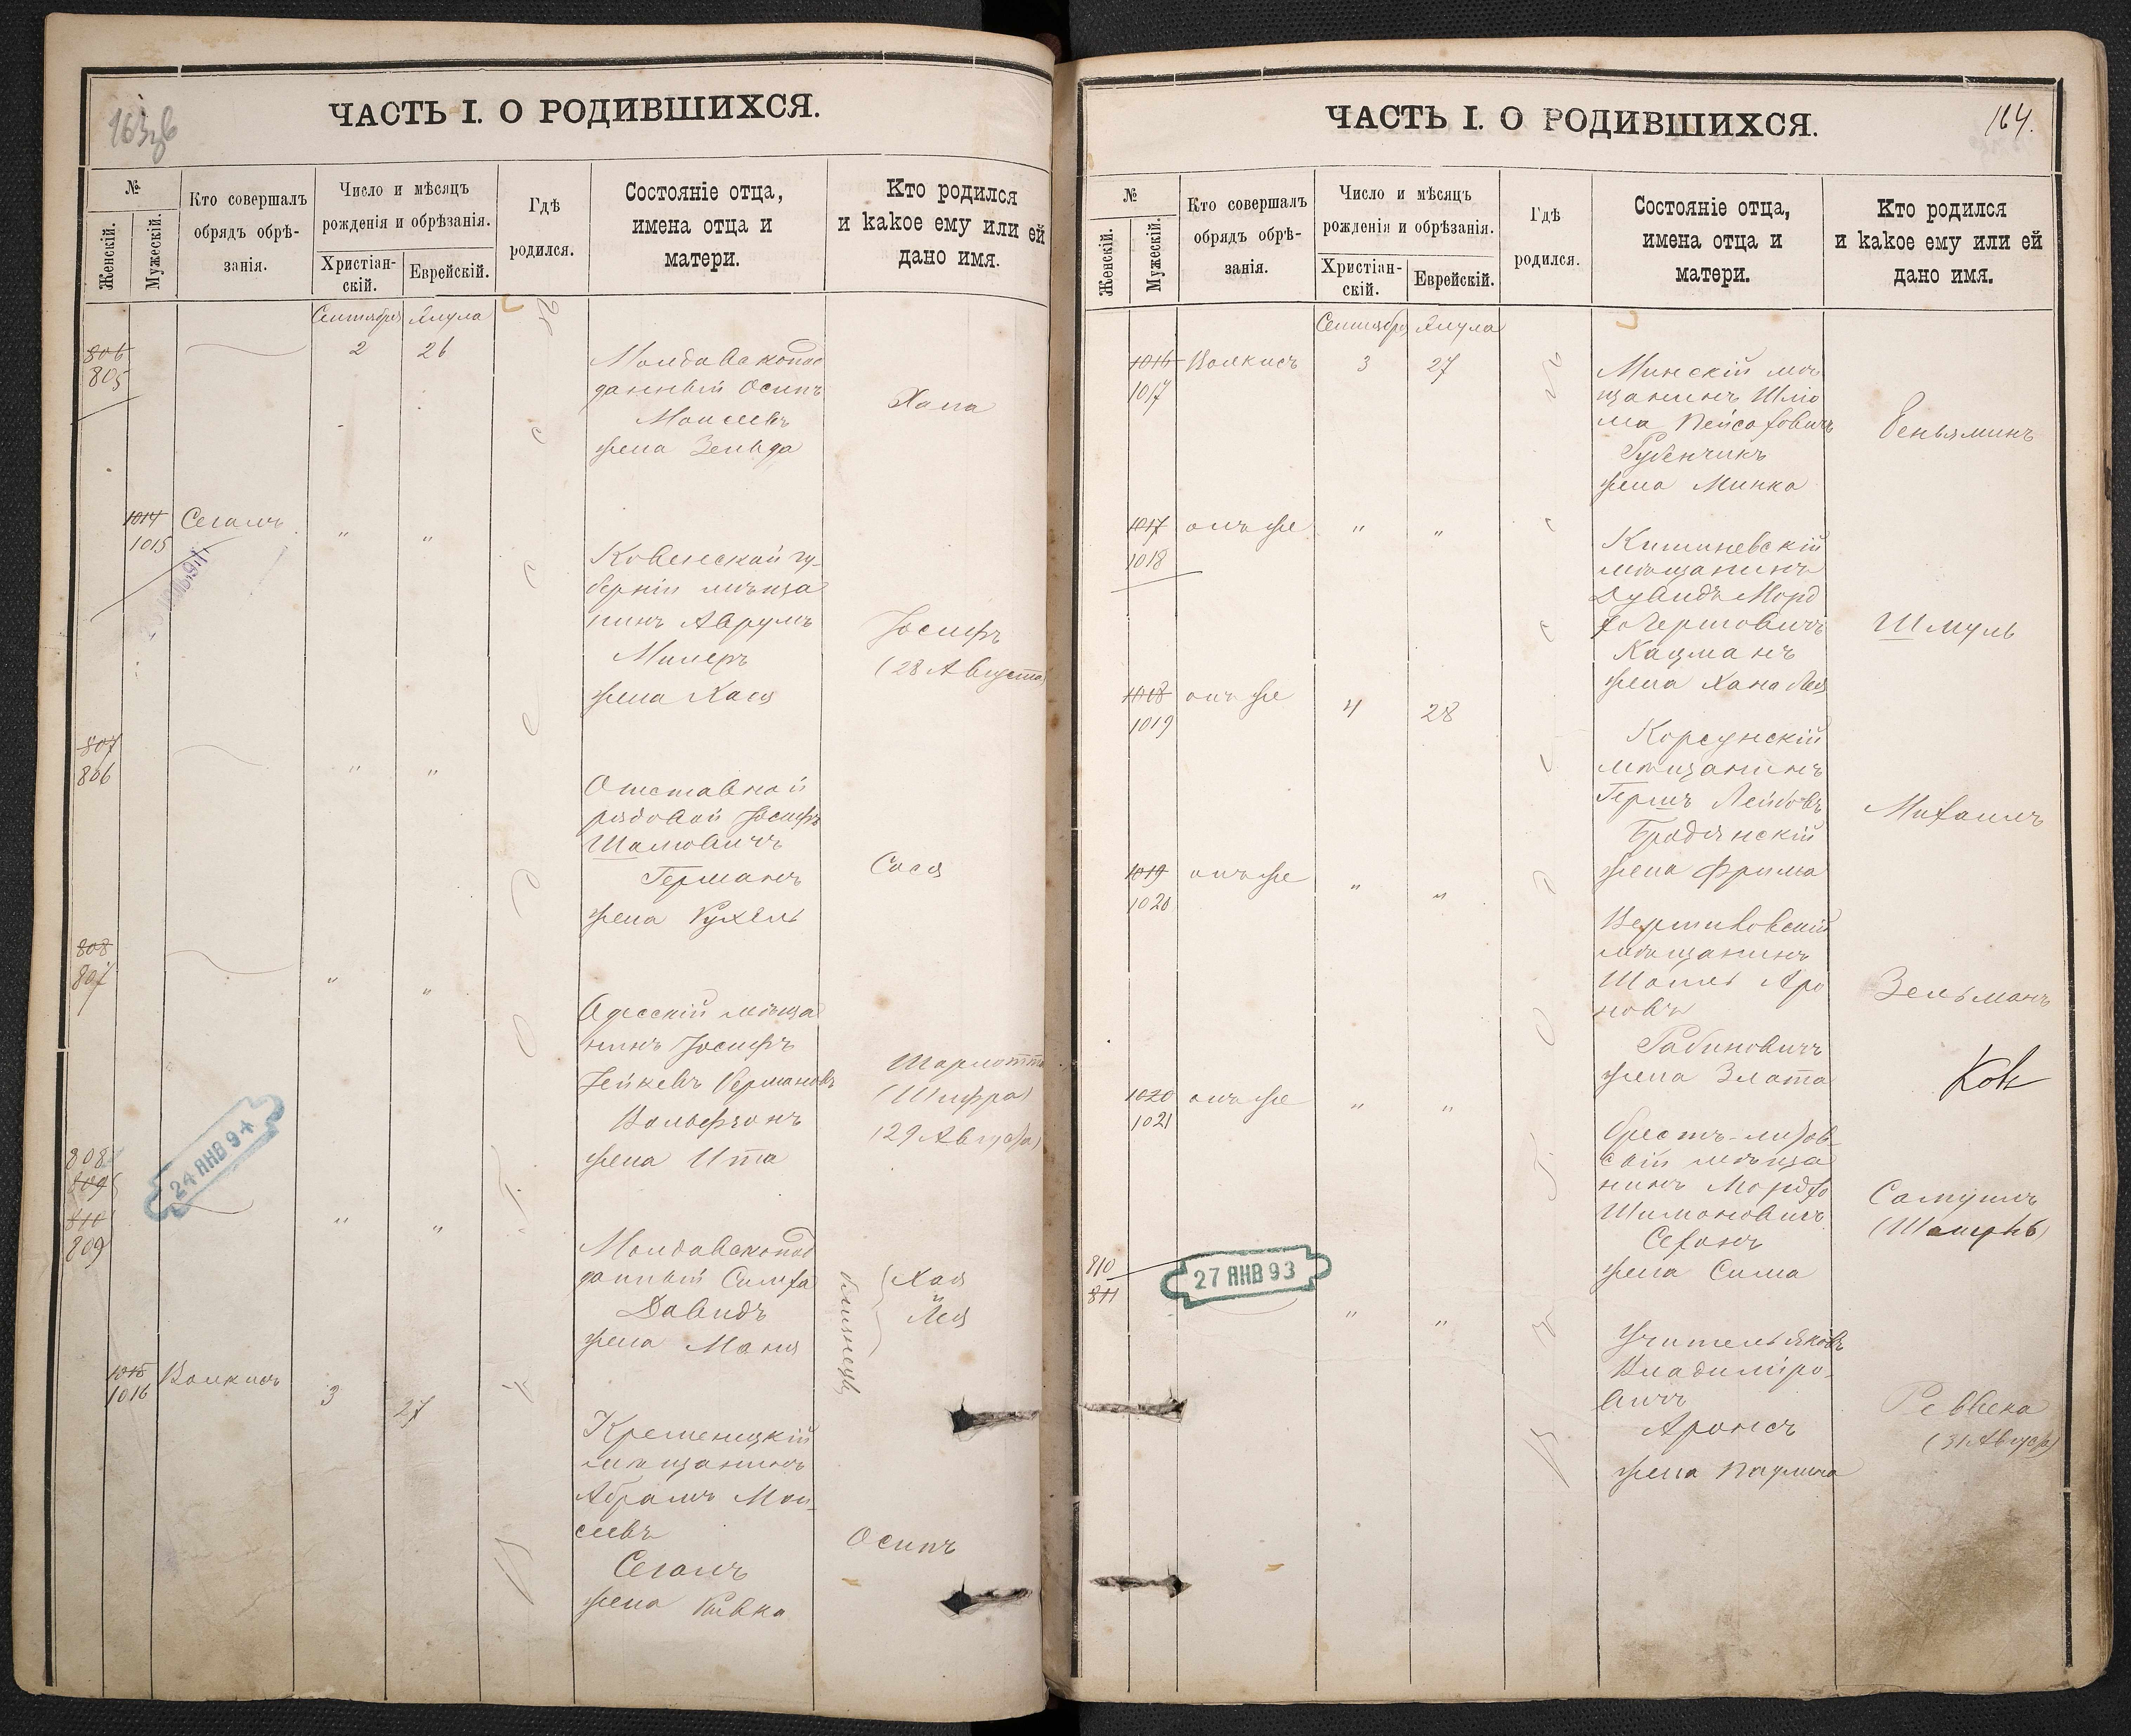 ЧАСТЬ I. О РОДИВШИХСЯ.
№
Женскій.
Мужескій.
Кто совершалъ
обрядъ обрѣ-
занія.
Число и мѣсяцъ
рожденія и обрѣзанія.
Христіан-
скій.
Еврейскій.
Гдѣ
родился.
Состояніе отца,
имена отца и
матери.
Кто родился
и какое ему или ей
дано имя.
Сентября Элула
806
805
2 26
Молдавскопод
данный Осипъ
Моисеевъ
жена Зельда
Хана
1014
1015
Сегалъ
" "
Ковенской гу-
берніи мѣща
нинъ Аврумъ
Милеръ
жена Хася
Іосифъ
(28 Августа)
807
806
" "
Отставной
рядовой Іосифъ
Шамовичъ
Германъ
жена Рухель
Сося
808
807
" "
Одесскій мѣща
нинъ Іосифъ
Вольфзонъ
жена Ита
Шарлотта
(Шифра)
(29 Августа)
24 ЯНВ 94
808
809
810
809
" "
Молдавскопод
данный Симха
Давидъ
жена Маня
близнецы
Хая
Лея
1015
1016
Волкисъ
3 27
Кременецкій
мѣщанинъ
Абрамъ Мои-
сеевъ
Сегалъ
жена Ривка
Осипъ
ЧАСТЬ I. О РОДИВШИХСЯ.
164.
№
Женскій.
Мужескій.
Кто совершалъ
обрядъ обрѣ-
занія.
Число и мѣсяцъ
рожденія и обрѣзанія.
Христіан-
скій.
Еврейскій.
Гдѣ
родился.
Состояніе отца,
имена отца и
матери.
Кто родился
и какое ему или ей
дано имя.
Сентябр Элула
1016
1017
Волкисъ
3 27
Минскій мѣ
щанинъ Шлio
ма Пейсаховичъ
Рубенчикъ
жена Минка
Беньяминъ
1017
1018
онъ же
" "
Кишиневскій
мѣщанинъ
Дувидъ Морд
ко Гершовичъ
Кацманъ
жена Хана Лея
Шмуль
1018
1019
онъ же
4 28
Корсунскій
мѣщанинъ
Гершъ Лейбовъ
Бродянскій
жена Фрима
Михаилъ
1019
1020
онъ же
" "
мѣщанинъ
Аро
новъ
Рабиновичъ
жена Злата
Зельманъ
1020
1021
онъ же
" "
Брестъ-литов-
скій мѣща
нинъ Мордко
Шимоновичъ
жена Сима
Самуилъ
810
811
27 ЯНВ 93
" "
Учитель Яковъ
Владиміро-
вичъ
Аронсъ
жена Паулина
Ревека
(31 Августа)